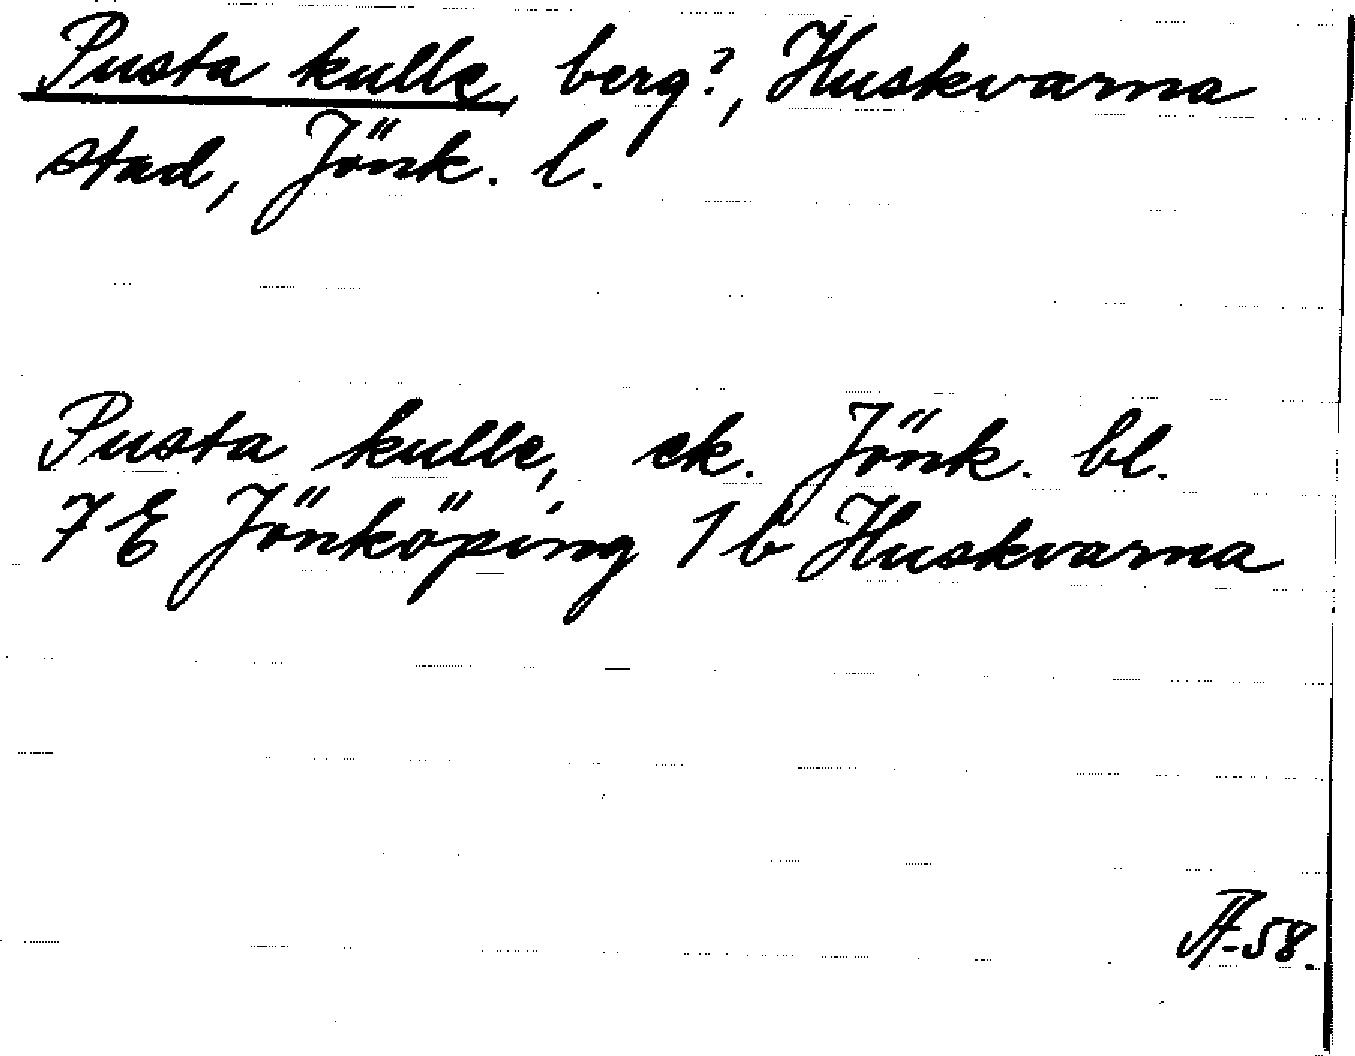 Pusta kulle, berg?, Huskvarna
stad, Jönk. l.
Pusta kulle, ek. Jönk. bl.
7 E Jönköping 1 b Huskvarna
-58.